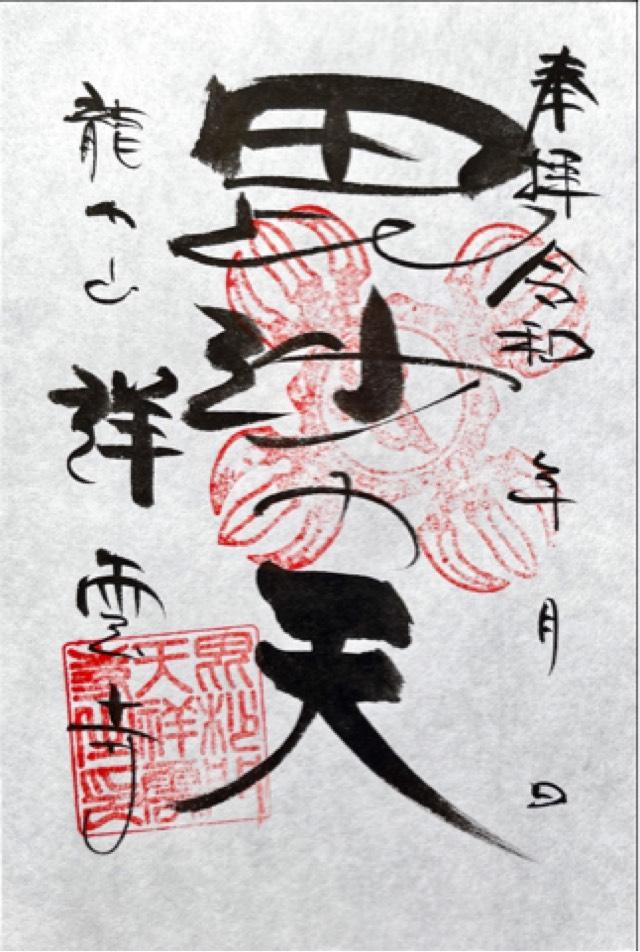 奉拝 令和 年 月 日
毘沙門天
龍 山 祥雲寺
毘沙門
天祥雲